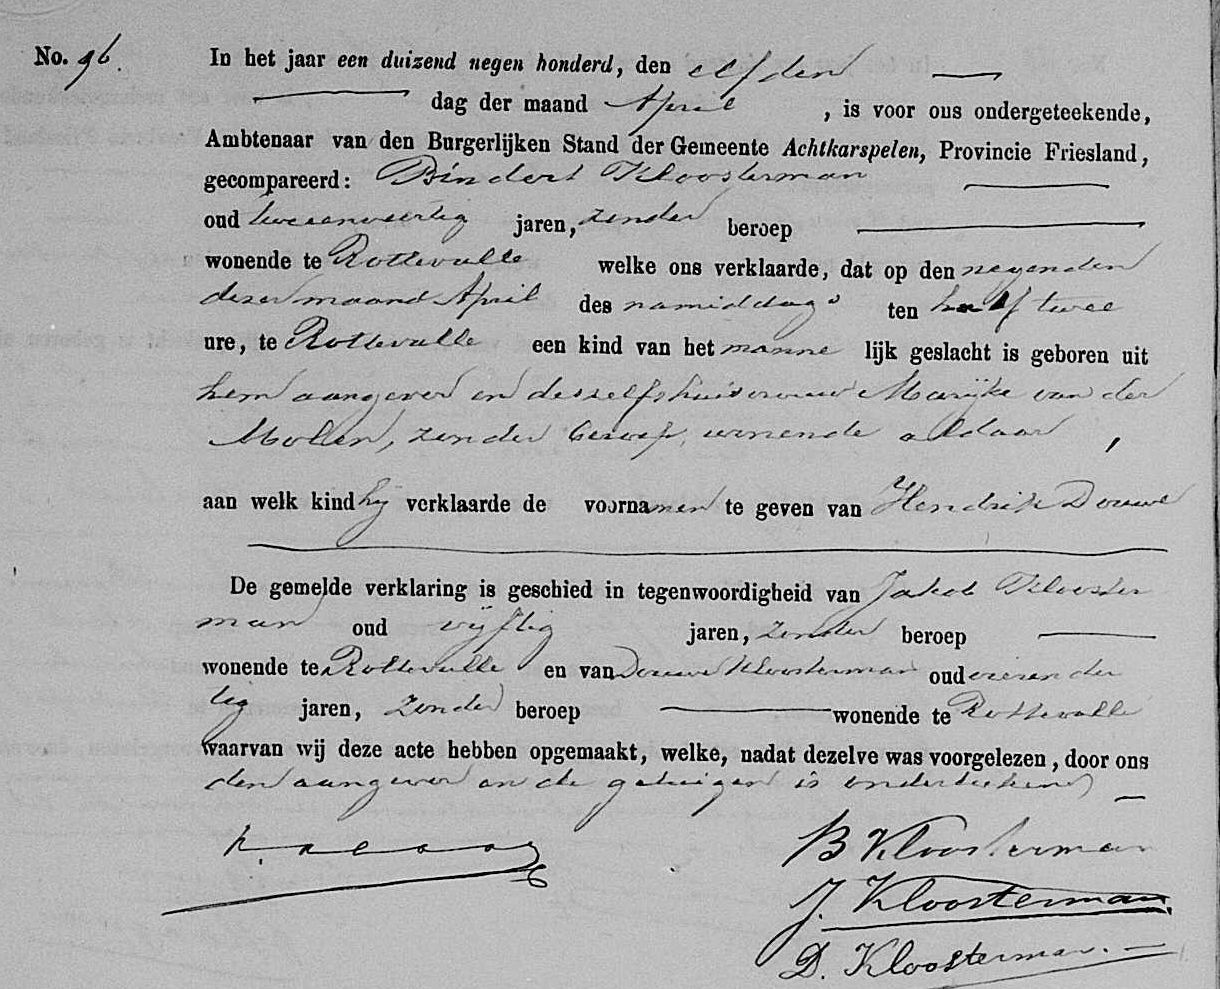 No. 96.
In het jaar een duizend negen honderd, den elfden
dag der maand April , is voor ons ondergeteekende,
Ambtenaar van den Burgerlijken Stand der Gemeente Achtkarspelen, Provincie Friesland,
gecompareerd: Bindert Kloosterman
oud tweeenveertig jaren, zonder beroep
wonende te Rottevalle welke ons verklaarde, dat op den negenden
dezer maand April des namiddags ten half twee
ure, te Rottevalle een kind van het manne lijk geslacht is geboren uit
hem aangever en deszelfs huisvrouw Marijke van der
Molen, zonder beroep, wonende aldaar ,
aan welk kind hij verklaarde de voornamen te geven van Hendrik Douwe
De gemelde verklaring is geschied in tegenwoordigheid van Jakob Klooster
man oud vijftig jaren, zonder beroep
wonende te Rottevalle en van Douwe Kloosterman oud vierender
tig jaren, zonder beroep wonende te Rottevalle
waarvan wij deze acte hebben opgemaakt, welke, nadat dezelve was voorgelezen, door ons
den aangever en de getuigen is onderteekend
B Kloosterman
J. Kloosterman.
D. Kloosterman.